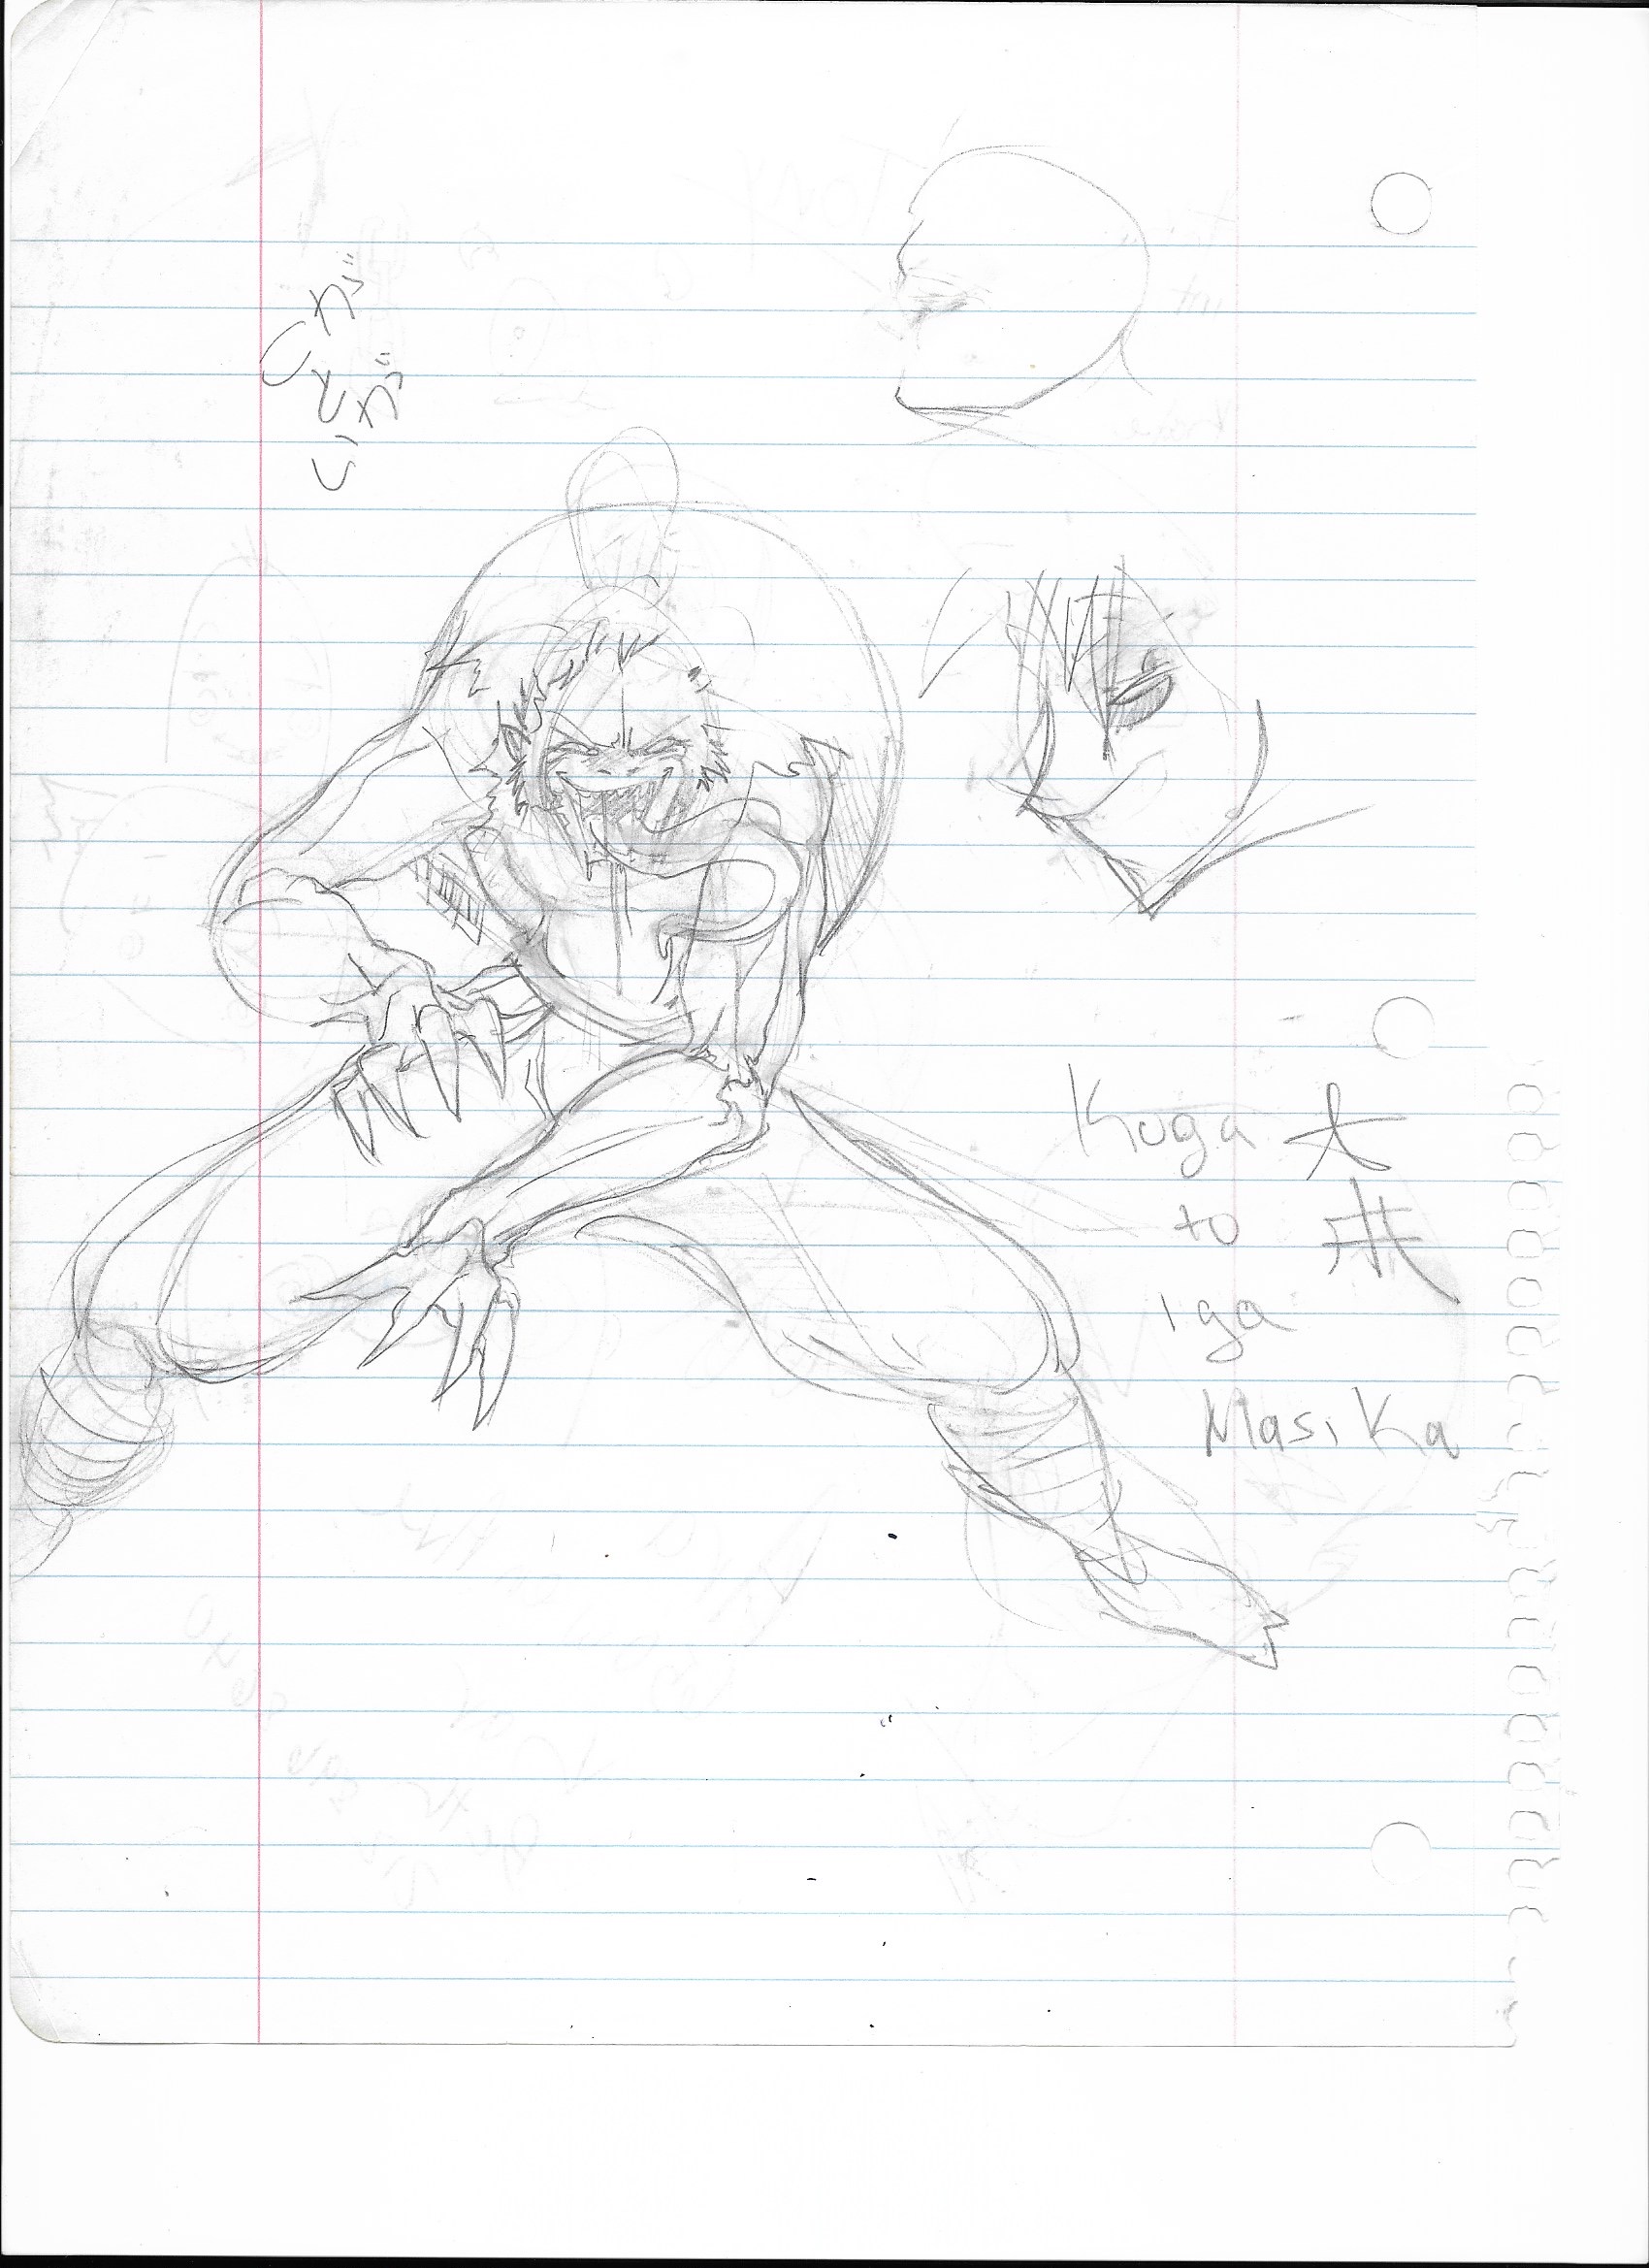 こが
と
いが
Koga
to
iga
Masika